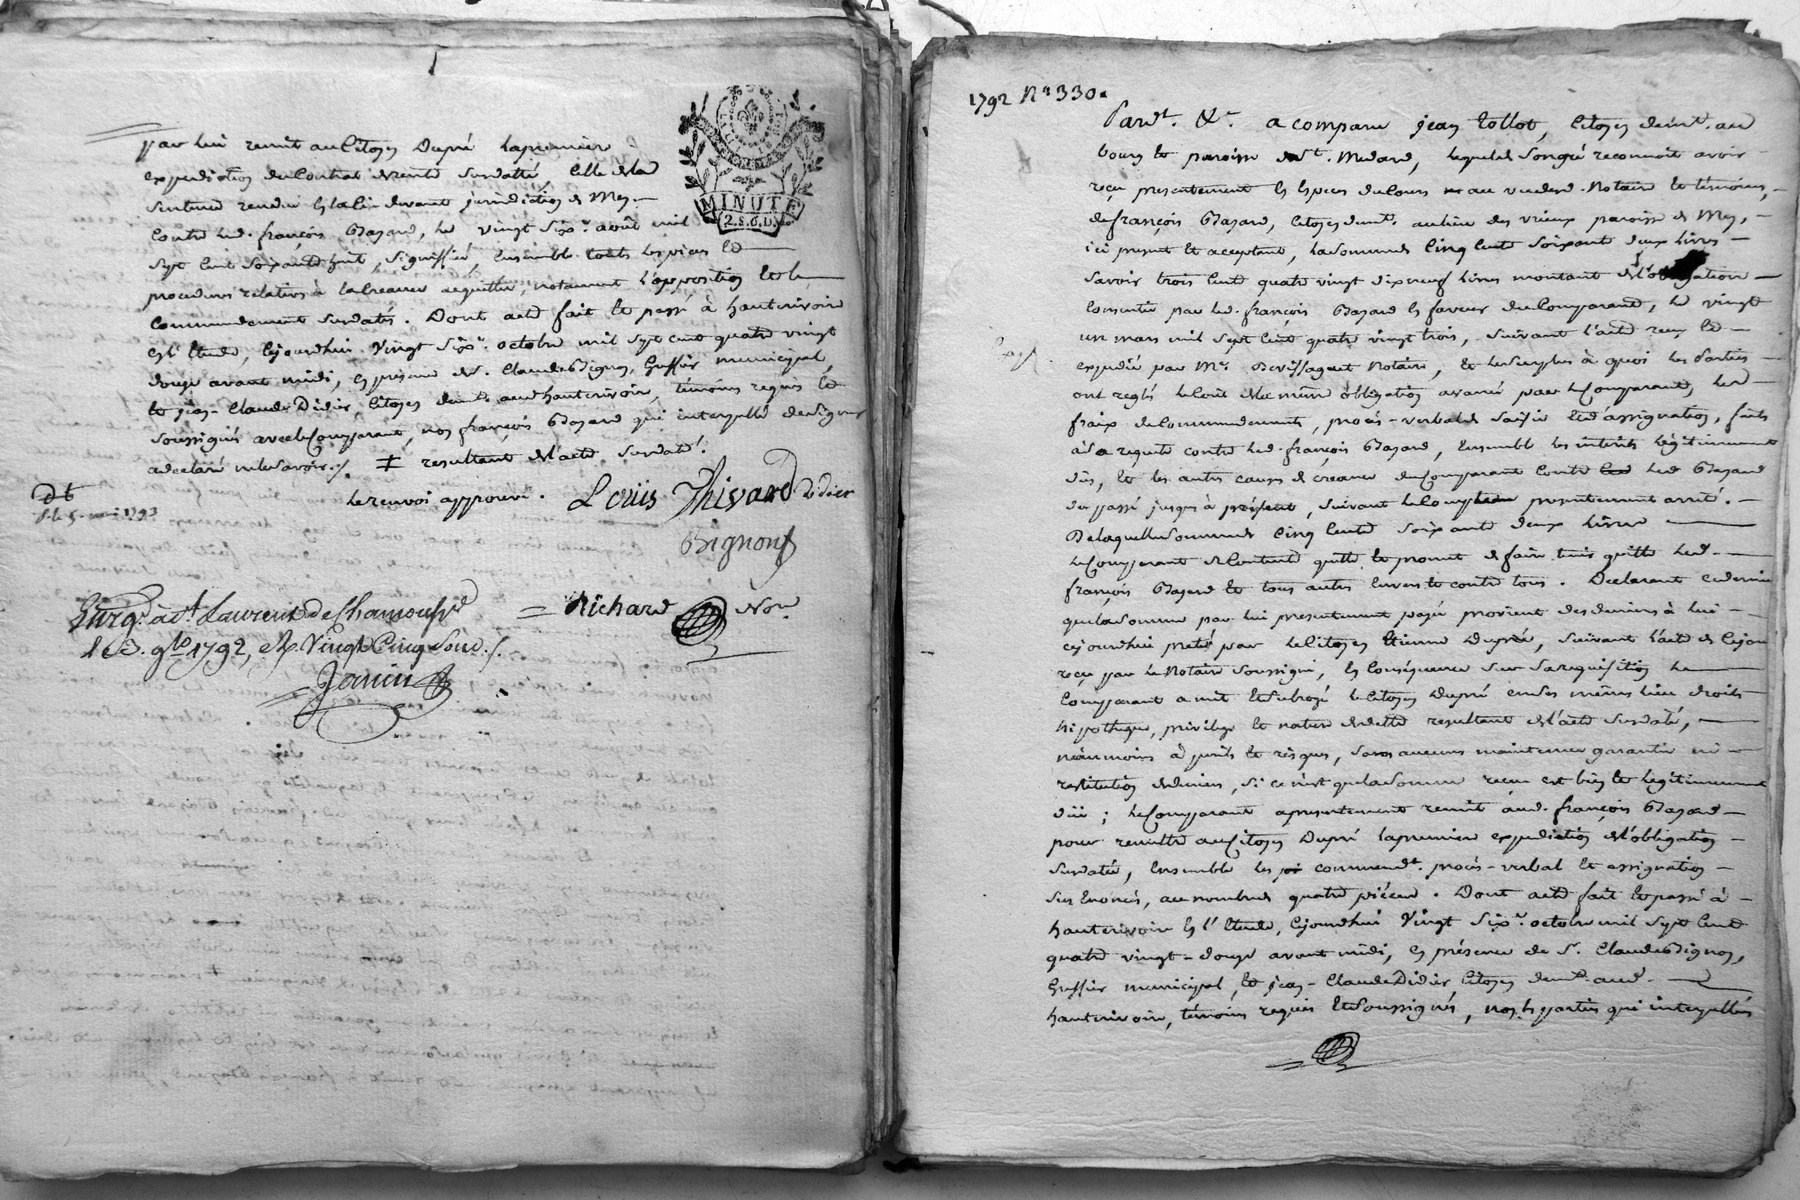 par lui remit au Citoyen Dupré la premiere
expedition du Contrat de rente susdatté, celle de la
sentence rendue en la ci-devant jurisdiction de Mey.
Contre led. françois Bazard, le vingt six.e août mil
sept cent soixante huit, signiffiée, ensemble touts les pieces et
procedures relatives à la creance acquittée, notamment l'opposition et le
commandement susdatés. Dont acte fait et passé à hauterivoire
en l'Etude, cejourdhui vingt six.e octobre mil sept cent quatre vingt
douze avant midi, en présence de s.r Claude Bignon, Greffier municipal,
et jean-Claude Didier, Citoyen dem.t aud hauterivoire, témoins requis et
soussignés avec le Comparant, non françois Bazard qui interpellé de signer
a declaré ne le savoir ./. ‡ resultant de l'acte susdaté.
le renvoi approuvé. Louis Thivard Didier
Bignon
Richard Not.re
Enreg.é à S.t Laurent de Chamousset
le 3. 9bre 1792, R. Vingt Cinq sous ./.
Janin
MINUTE
2.S.6.D.
1792 N.o 330.
Pard.t &.a a comparu jean Tollot, Citoyen demt. au
bourg et paroisse de St. Medard, lequel de son gré reconnoit avoir
reçu presentement en especes du cours au vu des d. Notaire et témoins,
de françois Bazard, Citoyen demt. au lieu des vrieux paroisse de Mey,
ici present et acceptant, la somme de Cinq cent soixante deux livres
savoir trois cent quatre vingt dix neuf livres montant de l'obligation
Consentie par led. françois Bazard en faveur du Comparant, le vingt
un mars mil sept cent quatre vingt trois, suivant l'acte reçu et
expedié par Me. Notaire, et le surplus à quoi les parties
ont reglés le cout de la même obligation avancé par le Comparant, les
fraix de Commandement, procès-verbal de saisie et d'assignation, faits
à sa requete contre led. françois Bazard, ensemble les intérêts légitimement
dus, et les autres causes de creance du Comparant contre led Bazard
du passé jusques à présent, suivant le Compte presentement arrêté.
De laquelle somme de cinq cent soixante deux livres
le Comparant se Contente quitte et promet de faire tenir quitte led.
françois Bazard et tous autres envers et contre tous. Declarant ce dernier
que la somme par lui presentement payée provient des deniers à lui
cejourdhui preté par le Citoyen Etienne Dupré, suivant l'acte de cejour
reçu par le Notaire soussigné, en conséquence sur sa requisition le
Comparant a mit et subrogé le Citoyen Dupré en ses mêmes lieu droits
hipotheque, privilege et nature de dette resultant de l'acte susdaté,
néanmoins à perils et risques, sans aucune maintenue garantie ni
restitution de deniers, si ce n'est que la somme reçue est bien et legitimement
düe ; le Comparant a presentement remit aud. françois Bazard
pour remettre au Citoyen Dupré la premiere expedition de l'obligation
susdatée, ensemble les commendt. procès-verbal et assignation
sus enoncés, au nombre de quatre piéces. Dont acte fait et passé à
hauterivoire en l'Etude, cejourdhui vingt six.e octobre mil sept cent
quatre vingt-douze avant midi, en présence de S.r Claude Bignon,
Greffier municipal, et jean-Claude Didier, Citoyen demt. aud.
hauterivoire, témoins requis et soussignés, non les parties qui interpellés